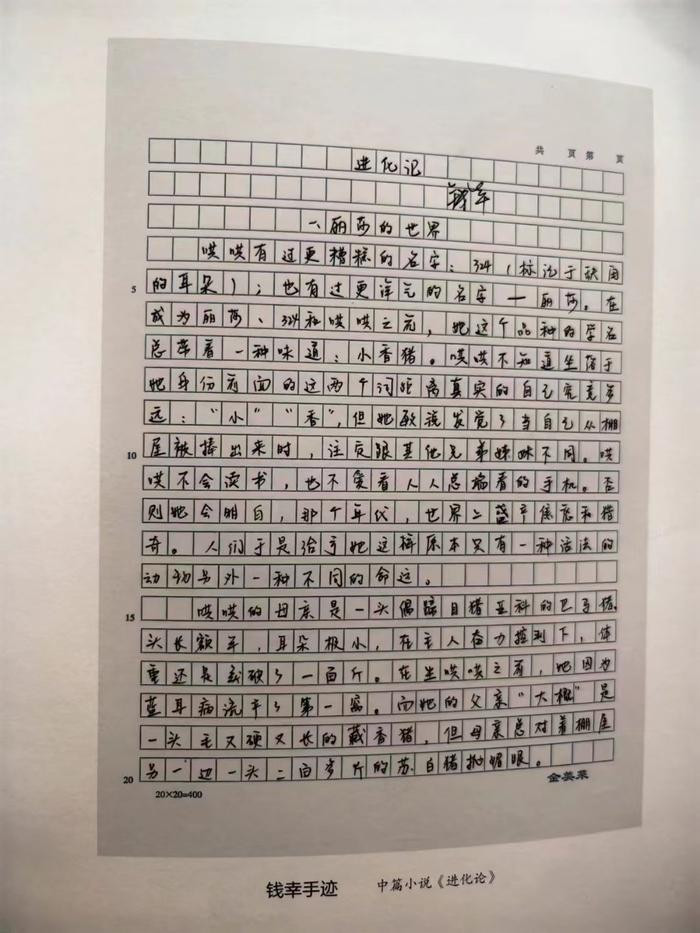 共 页 第 页
进化记
钱幸
一、丽莎的世界
哄哄有过更糟糕的名字：324（标记于缺角
5 的耳朵）；也有过更洋气的名字——丽莎。在
成为丽莎、324和哄哄之前，她这个品种的学名
总带着一种味道：小香猪。哄哄不知道坐落于
她身份前面的这两个词距离真实的自己究竟多
远：“小”“香”，但她敏锐发觉了当自己从棚
10 屋被捧出来时，注定跟其他兄弟姊妹不同。哄
哄不会读书，也不爱看人人总端着的手机。否
则她会明白，那个年代，世界上盛产焦虑和猎
奇。人们于是给予她这样原本只有一种活法的
动物另外一种不同的命运。
15 哄哄的母亲是一头偶蹄目猪亚科的巴马猪，
头长额平，耳朵极小，在主人奋力控制下，体
重还是突破了一百斤。在生哄哄之前，她因为
蓝耳病流产了第一窝。而她的父亲“大棚”是
一头毛又硬又长的藏香猪，但母亲总对着棚屋
20 另一边一头二百多斤的苏白猪抛媚眼。
20×20=400
金美菜
钱幸手迹 中篇小说《进化论》